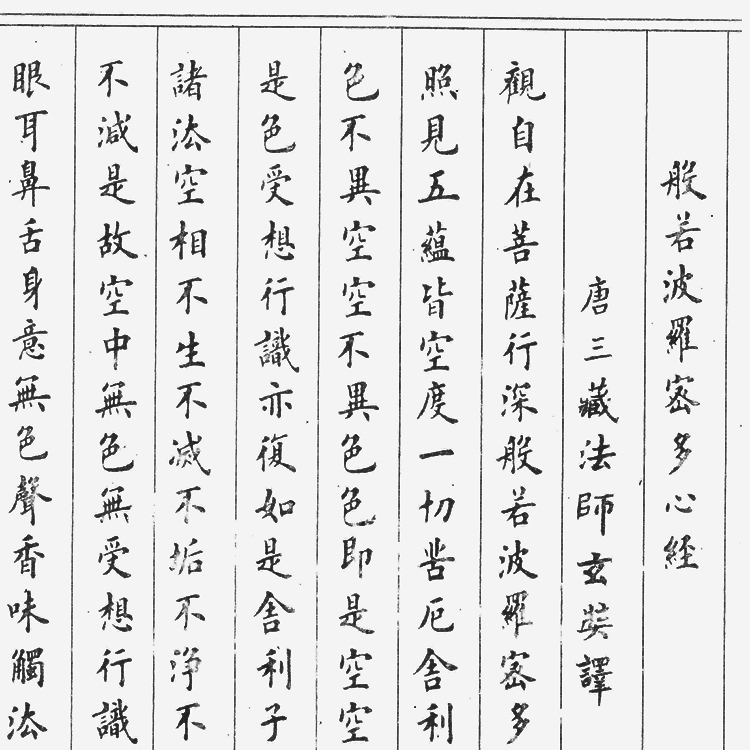 般若波羅蜜多心経
唐三藏法師玄奘譯
觀自在菩薩行深般若波羅蜜多
照見五蘊皆空度一切苦厄舍利
色不異空空不異色色即是空空
是色受想行識亦復如是舍利子
諸法空相不生不滅不垢不淨不
不減是故空中無色無受想行識
眼耳鼻舌身意無色聲香味觸法